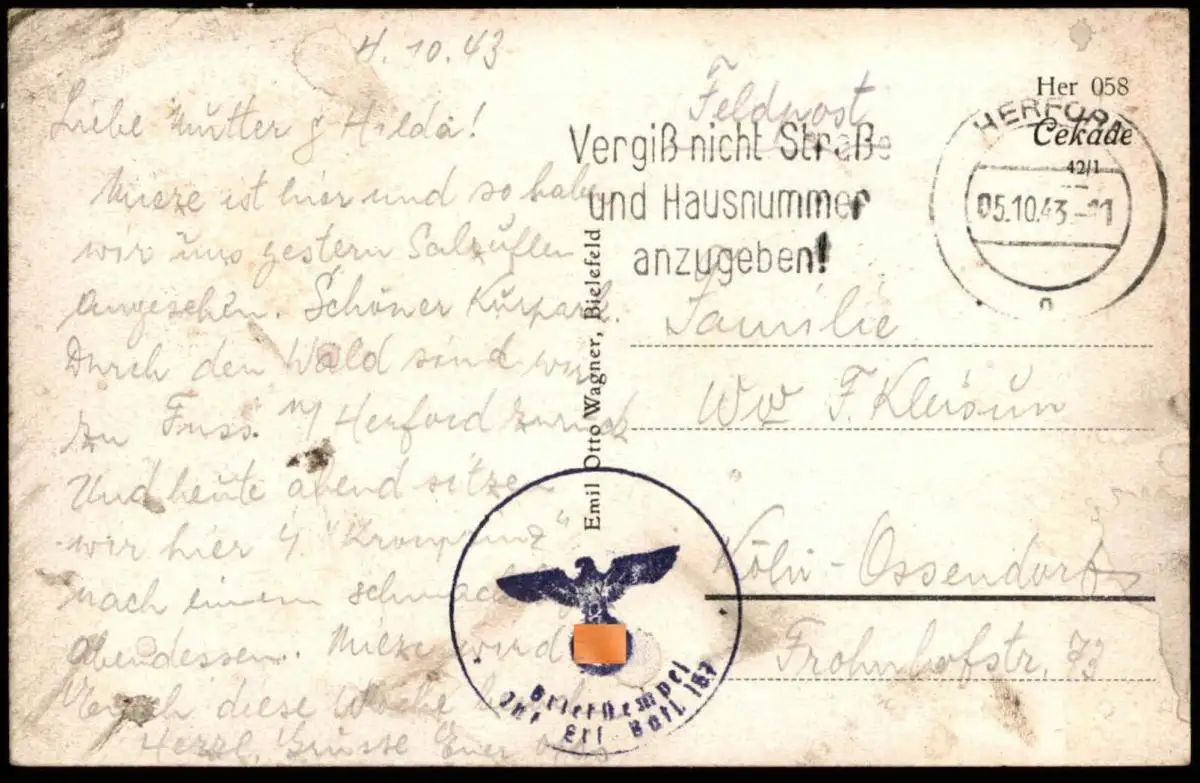 4.10.43
Liebe Mutter & Hilda!
Mieze ist hier und so habe
wir uns gestern Salzuflen
angesehen. Schöner Kurpark.
Durch den Wald sind wir
zu Fuss n/ Herford zurück
Und heute abend sitzen
wir hier i. "Kronprinz"
nach einem
abendessen. Mieze wird
diese Woche
Herzl. Grüsse Euer
Emil Otto Wagner, Bielefeld
Feldpost
Vergiß nicht Straße
und Hausnummer
anzugeben!
Her 058
Cekade
42/1
HERFORD
05.10.43.-11
n
Familie
Ww F. Kleisun
Köln-Ossendorf
Frohnhofstr. 73
Briefstempel
Inf. Ers. Batl. 167